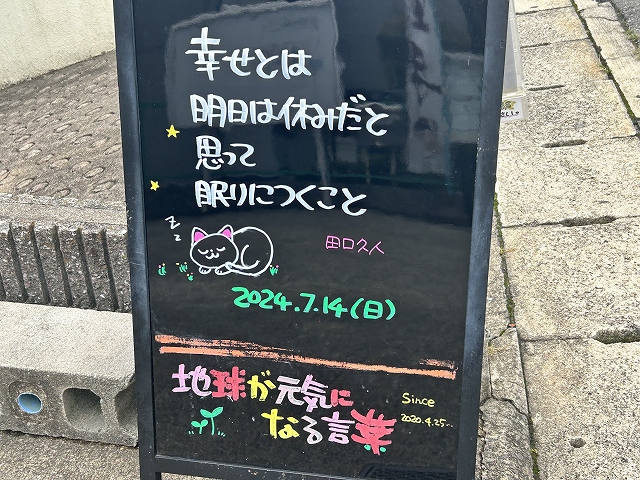 幸せとは
明日は休みだと
思って
眠りにつくこと
zz
田口久人
2024.7.14(日)
地球が元気に
なる言葉
Since
2020.4.25...